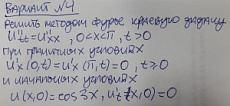 Вариант №4
Решить методом Фурье краевую задачу
u''tt = u''xx, 0<x<π, t>0
При граничных условиях
u'x(0,t) = u'x(π,t) = 0, t≥0
и начальных условиях
u(x,0) = cos 3x, u't(x,0) = 0